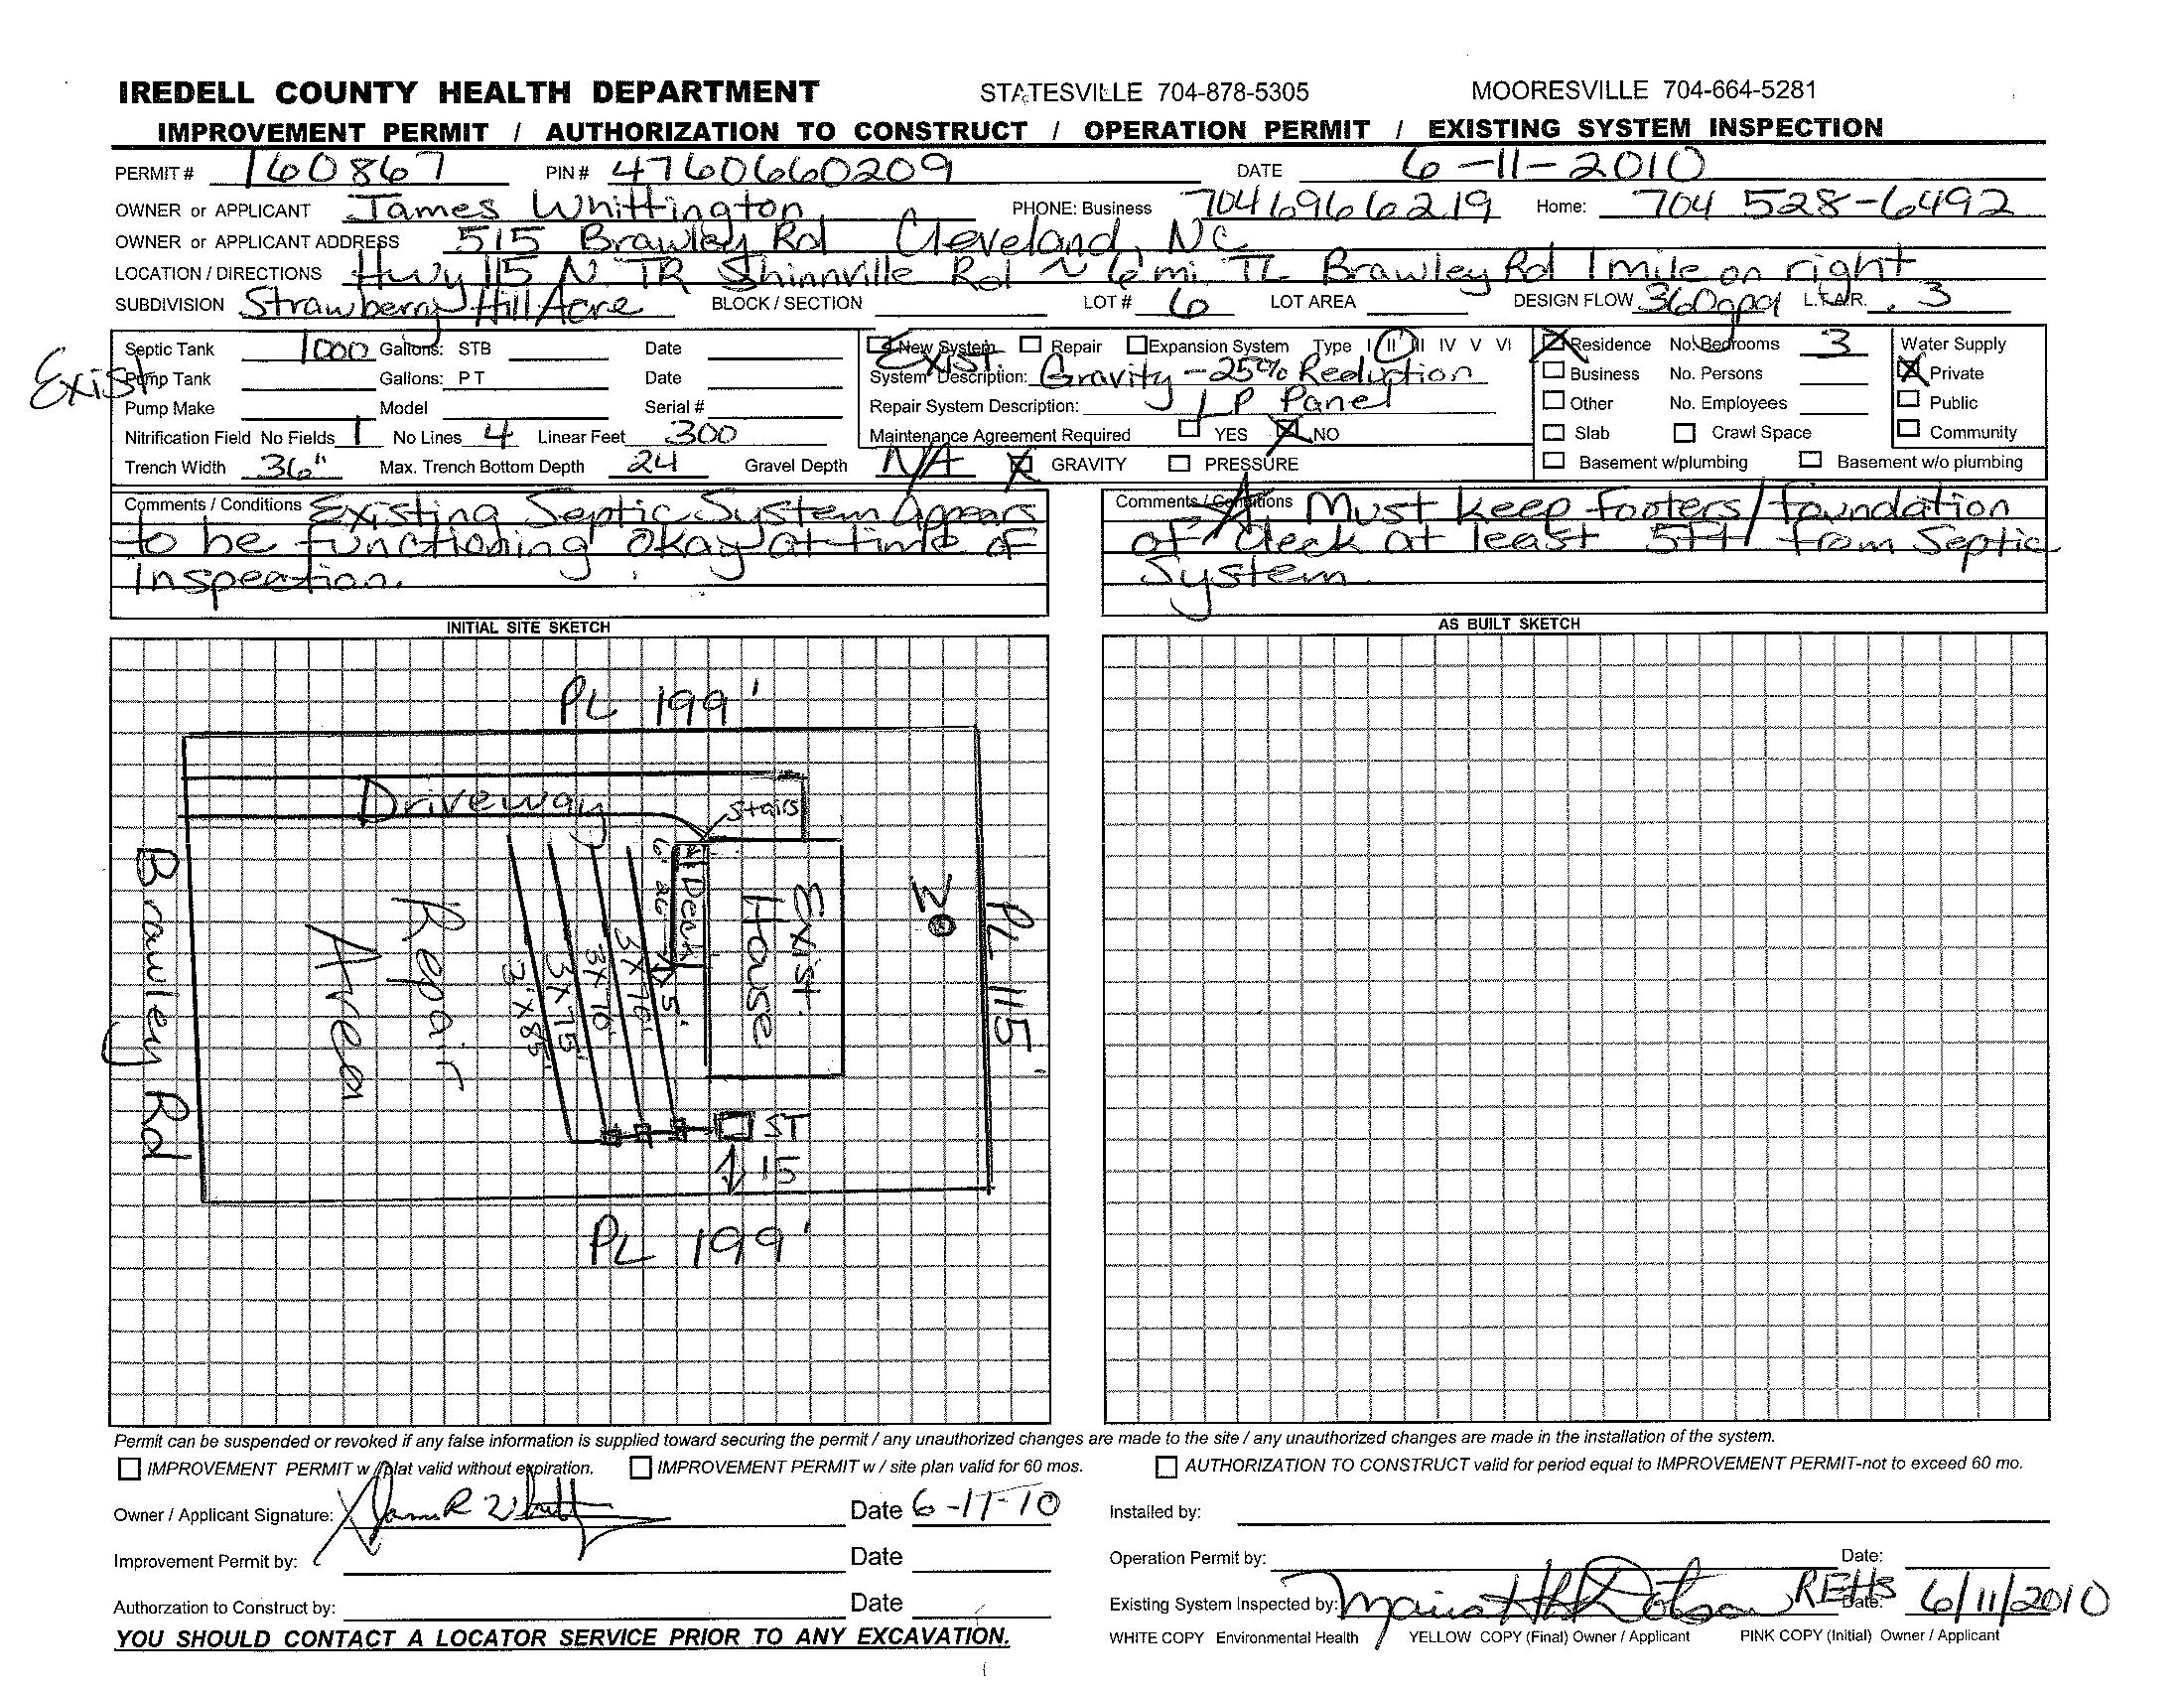 IREDELL COUNTY HEALTH DEPARTMENT STATESVILLE 704-878-5305 MOORESVILLE 704-664-5281
IMPROVEMENT PERMIT / AUTHORIZATION TO CONSTRUCT / OPERATION PERMIT / EXISTING SYSTEM INSPECTION
PERMIT # 160867 PIN # 4760660209 DATE 6-11-2010
OWNER or APPLICANT James Whittington PHONE: Business 7046966219 Home: 704 528-6492
OWNER or APPLICANT ADDRESS 515 Brawley Rd Cleveland, NC
LOCATION / DIRECTIONS Hwy 115 N TR Shinnville Rd ~ 6 mi. TL Brawley Rd 1 mile on right
SUBDIVISION Strawberry Hill Acre BLOCK / SECTION LOT # 6 LOT AREA DESIGN FLOW 360gpd L.T.A.R. .3
Septic Tank 1000 Gallons: STB Date
Exist
Pump Tank Gallons: PT Date
Pump Make Model Serial #
Nitrification Field No Fields 1 No Lines 4 Linear Feet 300
Trench Width 36" Max. Trench Bottom Depth 24 Gravel Depth N/A GRAVITY PRESSURE
New System Repair Expansion System Type I II III IV V VI
Exist.
System Description: Gravity - 25% Reduction
Repair System Description: LP Panel
Maintenance Agreement Required YES NO
Residence No. Bedrooms 3 Water Supply
Business No. Persons Private
Other No. Employees Public
Slab Crawl Space Community
Basement w/plumbing Basement w/o plumbing
Comments / Conditions Existing Septic System Appears
to be functioning okay at time of
inspection.
Comments / Conditions Must keep footers/foundation
of deck at least 5ft from Septic
System
INITIAL SITE SKETCH AS BUILT SKETCH
PL 199'
Driveway
Stairs
Brawley Rd
Repair
Area
3'x85'
3x75'
3x70'
3x70'
6'
26
Deck
5'
Exist.
House
30
PL 115'
ST
15
PL 199'
Permit can be suspended or revoked if any false information is supplied toward securing the permit / any unauthorized changes are made to the site / any unauthorized changes are made in the installation of the system.
IMPROVEMENT PERMIT w / plat valid without expiration. IMPROVEMENT PERMIT w / site plan valid for 60 mos. AUTHORIZATION TO CONSTRUCT valid for period equal to IMPROVEMENT PERMIT-not to exceed 60 mo.
Owner / Applicant Signature: Date 6-11-10 Installed by:
Improvement Permit by: Date Operation Permit by: Date:
Authorzation to Construct by: Date Existing System Inspected by: REHS Date: 6/11/2010
YOU SHOULD CONTACT A LOCATOR SERVICE PRIOR TO ANY EXCAVATION. WHITE COPY Environmental Health YELLOW COPY (Final) Owner / Applicant PINK COPY (Initial) Owner / Applicant